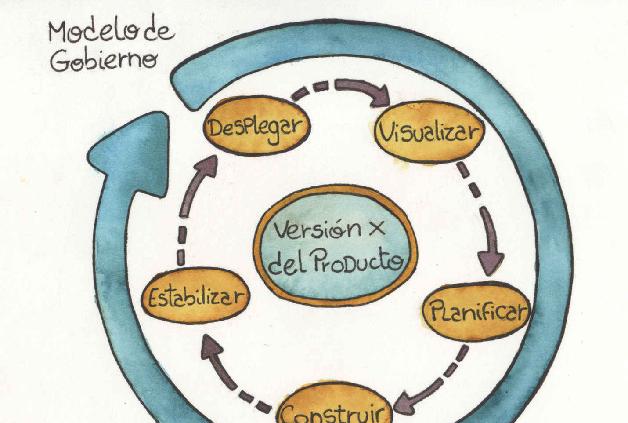 Modelo de
Gobierno
Desplegar
Visualizar
Versión x
del Producto
Estabilizar
Planificar
Construir